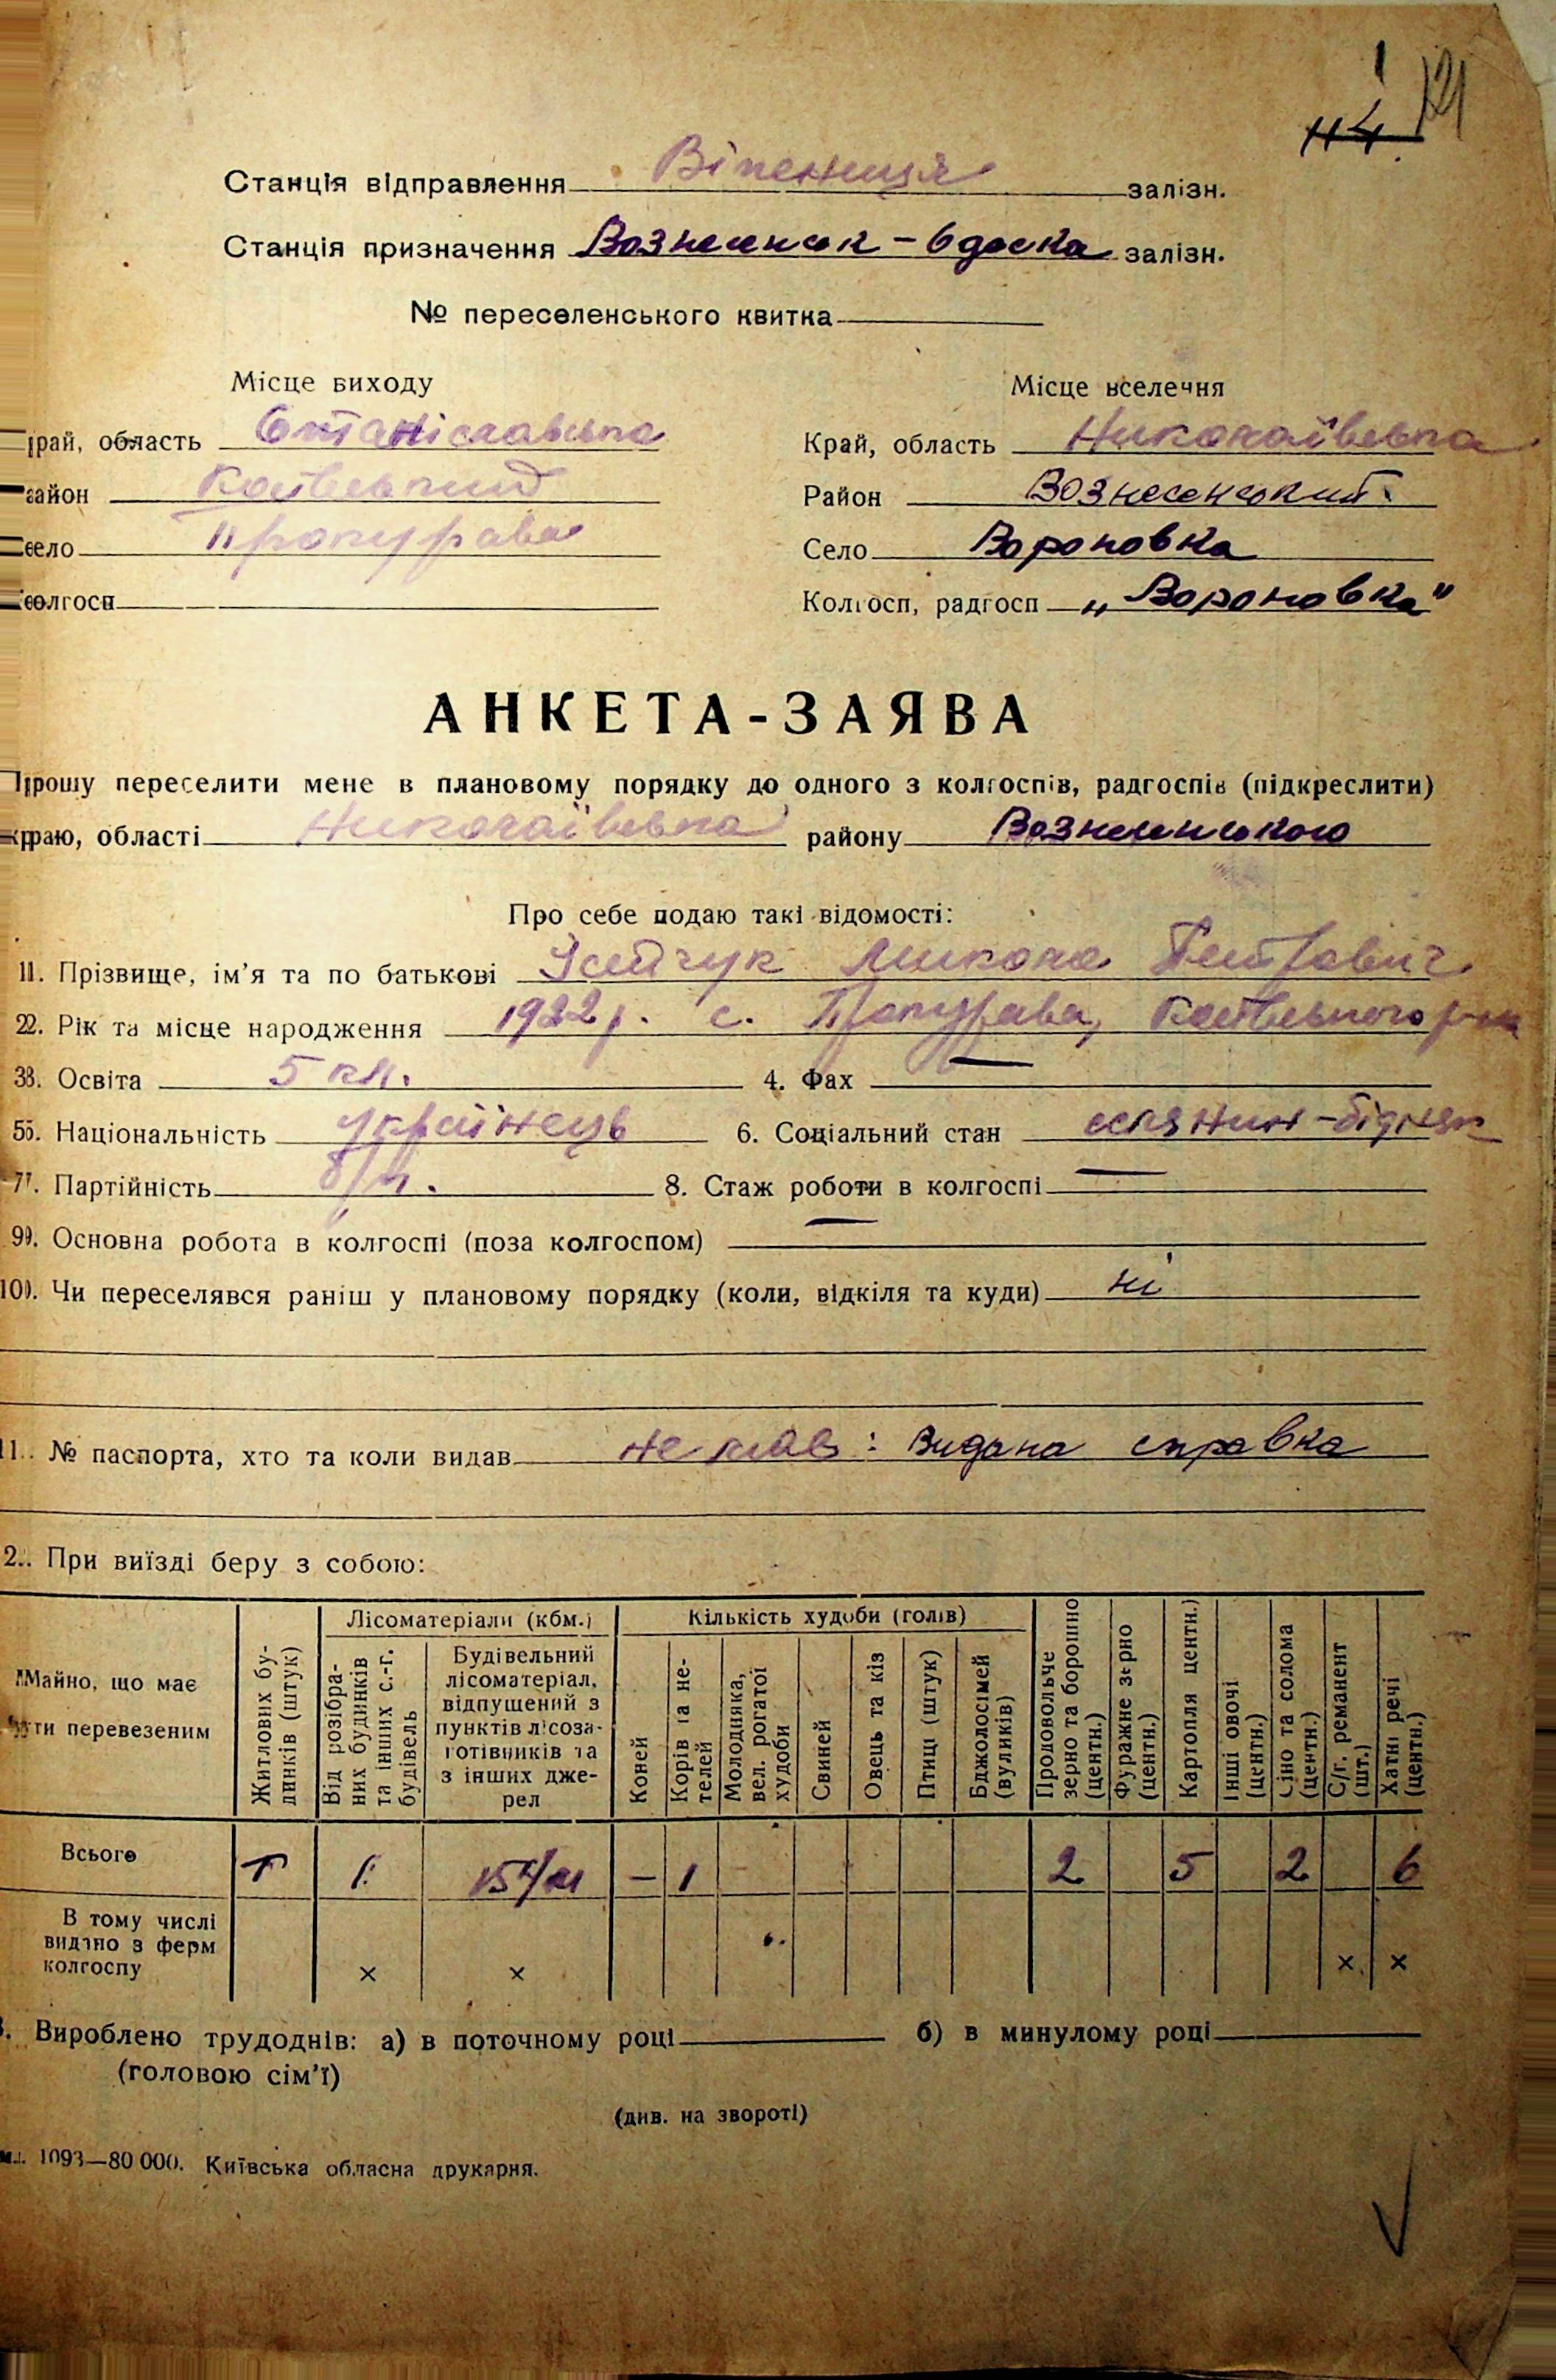 1
114
Станція відправлення Віпениця залізн.
Станція призначення Вознесенськ - Одеска залізн.
№ переселенського квитка
Місце виходу Місце вселення
край, область Станіславська Край, область Николаївська
район Район Вознесенський
село Село Вороновка
колгосп Колгосп, радгосп „Вороновка"
АНКЕТА-ЗАЯВА
Прошу переселити мене в плановому порядку до одного з колгоспів, радгоспів (підкреслити)
краю, області Николаївська району Вознесенського
Про себе подаю такі відомості:
1. Прізвище, ім'я та по батькові Микола Петрович
2. Рік та місце народження 1922 р. с.
3. Освіта 5 кл. 4. Фах —
5. Національність українець 6. Соціальний стан селянин-бідняк
7. Партійність б/п. 8. Стаж роботи в колгоспі —
9. Основна робота в колгоспі (поза колгоспом) —
10. Чи переселявся раніш у плановому порядку (коли, відкіля та куди) ні
11. № паспорта, хто та коли видав не мав: Видана справка
2. При виїзді беру з собою:
Майно, що має бути перевезеним
Житлових будинків (штук)
Лісоматеріали (кбм.)
Від розібраних будинків та інших с.-г. будівель
Будівельний лісоматеріал, відпущений з пунктів лісозаготівників та з інших джерел
Кількість худоби (голів)
Коней
Корів та нетелей
Молодняка, вел. рогатої худоби
Свиней
Овець та кіз
Птиці (штук)
Бджолосімей (вуликів)
Продовольче зерно та борошно (центн.)
Фуражне зерно (центн.)
Картопля центн.)
Інші овочі (центн.)
Сіно та солома (центн.)
С/г. реманент (шт.)
Хатні речі (центн.)
Всього 1 — 1 2 5 2 6
В тому числі видано з ферм колгоспу × × × ×
Вироблено трудоднів: а) в поточному році б) в минулому році
(головою сім'ї)
(див. на звороті)
1093—80 000. Київська обласна друкарня.